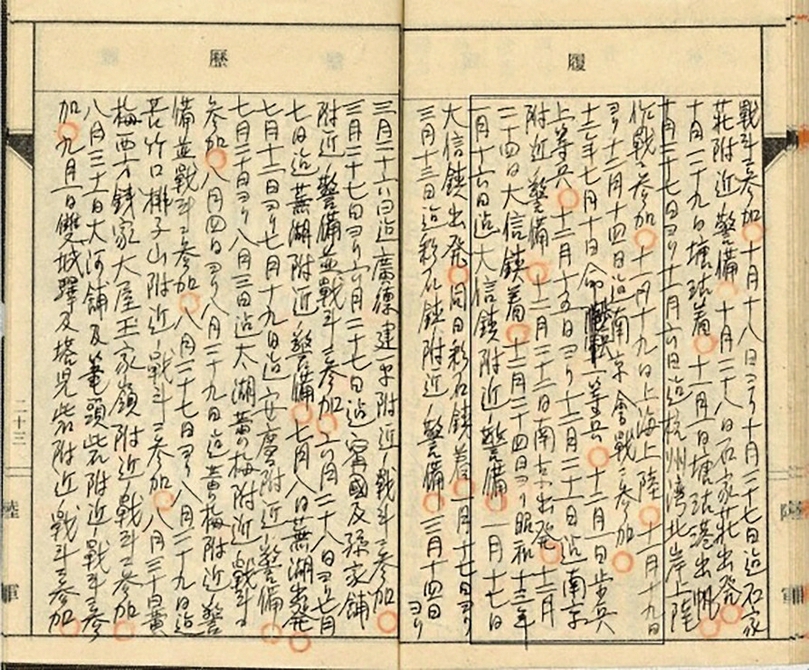 履
戦斗ニ参加 十月十八日ヨリ十月二十七日迄石家
荘附近ノ警備 十月二十八日石家荘出発
十月二十九日塘沽着 十一月一日塘沽港出帆
十月二十七日ヨリ十一月六日迄杭州湾北岸上陸
作戦ニ参加 十一月十九日上海上陸 十一月十九日
ヨリ十二月十四日迄南京會戦ニ参加
十二年七月十日命 一等兵 十二月一日歩兵
上等兵 十二月十五日ヨリ十二月二十一日迄南京
附近ノ警備 十二月二十二日南京出発 十二月
二十四日大信鎮着 十二月二十四日ヨリ昭和十三年
一月十六日迄大信鎮附近ノ警備 一月十七日
大信鎮出発同日彩石鎮着 一月十七日ヨリ
三月十三日迄彩石鎮附近ノ警備 三月十四日ヨリ
陸軍
歷
三月二十六日迄廣徳建平附近ノ戦斗ニ参加
三月二十七日ヨリ六月二十七日迄寧國及孫家舗
附近ノ警備並戦斗ニ参加 六月二十八日ヨリ七月
七日迄蕪湖附近ノ警備 七月八日蕪湖出発
七月十二日ヨリ七月十九日迄安慶附近ノ警備
七月二十日ヨリ八月三日迄太湖黄梅附近ノ戦斗ニ
参加 八月四日ヨリ八月二十九日迄黄梅附近ノ警
備並戦斗ニ参加 八月二十七日ヨリ八月二十九日迄
苦竹口排子山附近ノ戦斗ニ参加 八月三十日黄
梅西方銭家大屋王家嶺附近ノ戦斗ニ参加
八月三十一日大河舗及 頭岩附近ノ戦斗ニ参
加 九月一日雙城驛及塔児岩附近ノ戦斗ニ参加
二十三
陸軍